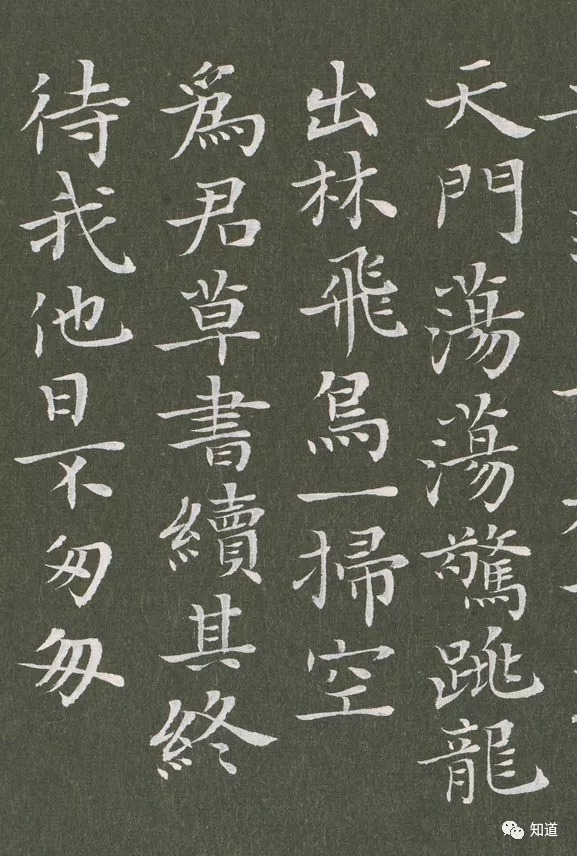 天門蕩蕩驚跳龍
出林飛鳥一掃空
為君草書續其終
待我他日不匆匆
知道